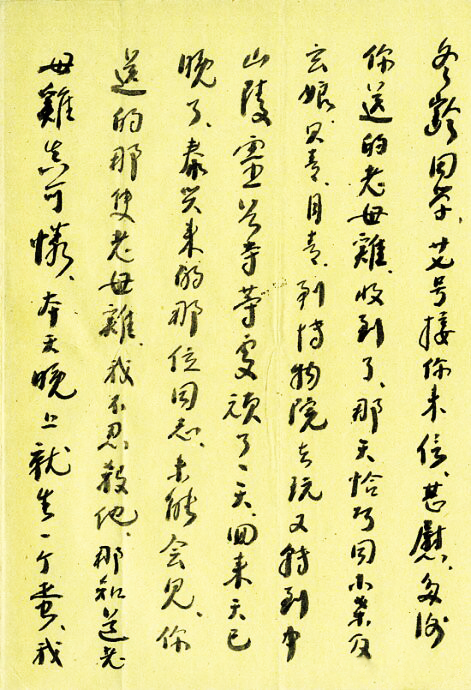 冬龄同学、廿号接你来信、甚慰、多谢
你送的老母雞、收到了、那天恰巧同小業及
玄娘、只青、月青、到博物院去玩又轉到中
山陵靈谷寺等处頑了一天、回来天已
晚了、泰兴来的那位同志、未能会见、你
送的那隻老母雞、我不忍殺他、那知這老
母雞真可憐、本天晚上就生一个蛋、我